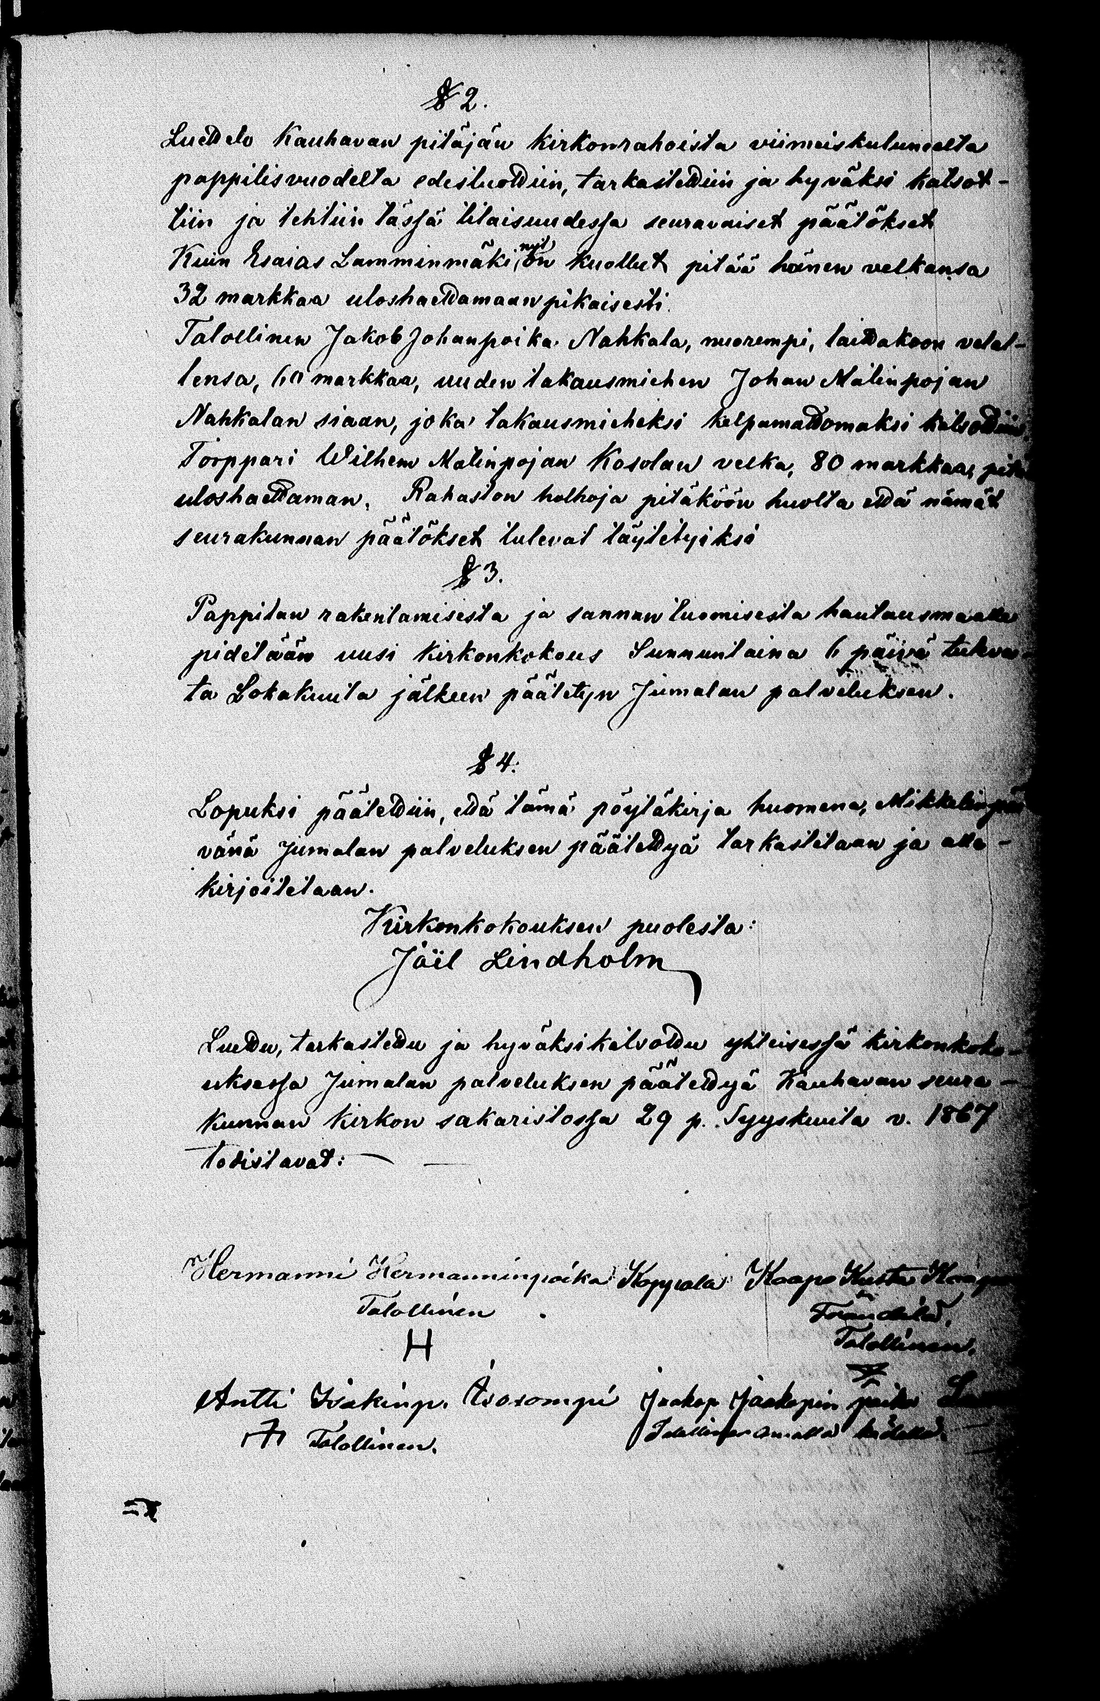 § 2.
Luettelo Kauhavan pitäjän kirkonrahoista viimeiskuluneelta
pappilisvuodelta edestuottiin, tarkastettiin ja hyväksi katsot-
tiin ja tehtiin tässä tilaisuudessa seuravaiset päätökset
Kuin Esaias Lamminmäki nyt on kuollut pitää hänen velkansa
32 markkaa uloshaettamaan pikaisesti.
Talollinen Jakob Johanpoika Nahkala, nuorempi, laittakoon velal-
lensa, 60 markkaa, uuden takausmiehen Johan Matinpojan
Nahkalan siaan, joka takausmieheksi kelpamattomaksi katsottiin.
Torppari Wilhem Matinpojan Kosolan velka, 80 markkaa, pitä
uloshaettaman. Rahaston holhoja pitäköön huolta että nämät
seurakunnan päätökset tulevat täytetyiksi
§ 3.
Pappilan rakentamisesta ja sannan tuomisesta hautausmaalle
pidetään uusi kirkonkokous Sunnuntaina 6 päivä tulva-
ta Lokakuuta jälkeen päätetyn Jumalan palveluksen.
§ 4.
Lopuksi päätettiin, että tämä pöytäkirja huomena, Mikkelinpäi
vänä Jumalan palveluksen päätettyä tarkastetaan ja alle-
kirjoitetaan.
Kirkonkokouksen puolesta:
Joël Lindholm
Luettu, tarkastettu ja hyväksikatsottu yhteisessä kirkonkoko-
uksessa Jumalan palveluksen päätettyä Kauhavan seura-
kunnan kirkon sakaristossa 29 p. Syyskuuta v. 1867
todistavat:
Hermanni Hermanninpoika Koppala Kaapo Kusta
Talollinen
Talollinen.
H
Antti Isakinp. Isosompi Jaakop Jaakopin poika
Talollinen. Talollinen omalla kädellä.